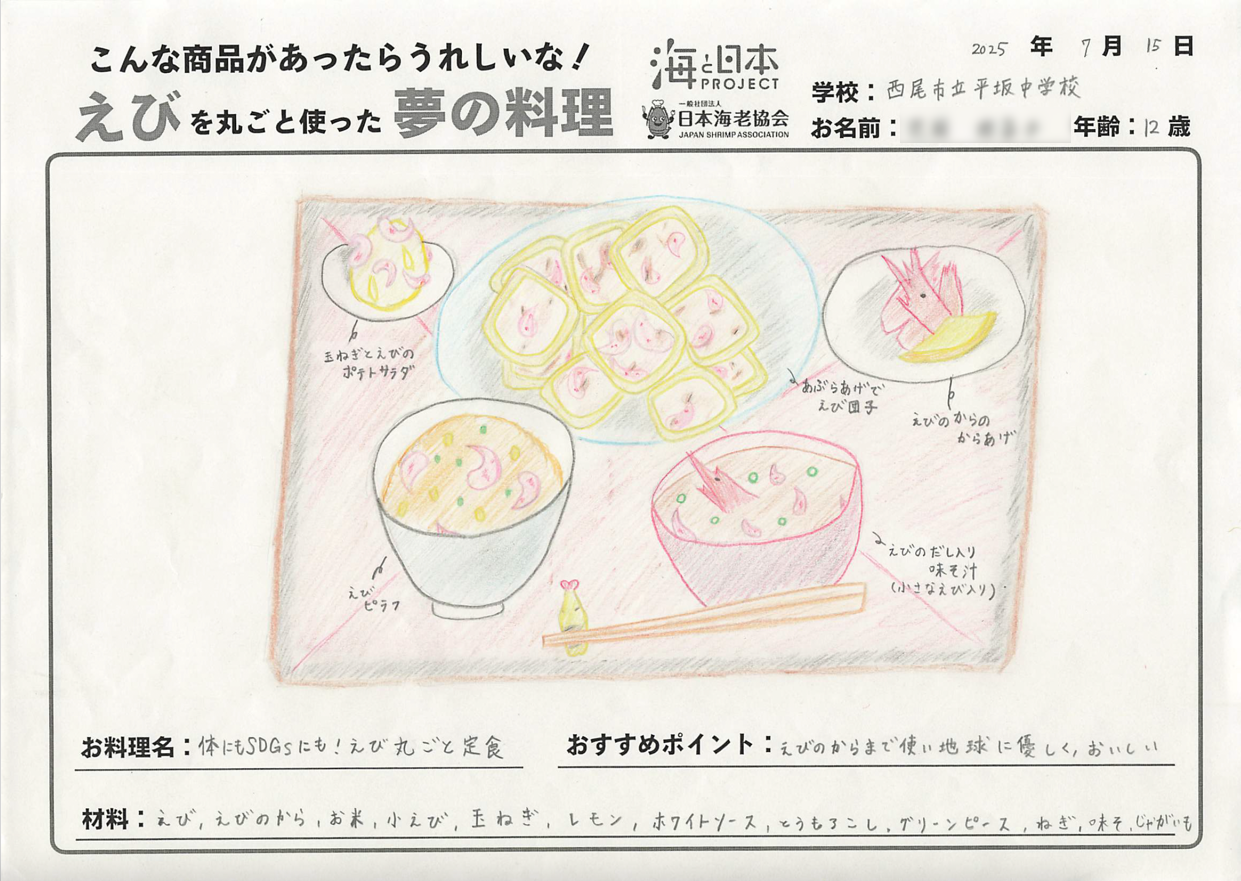 こんな商品があったらうれしいな！
えびを丸ごと使った夢の料理
海と日本
PROJECT
一般社団法人
日本海老協会
JAPAN SHRIMP ASSOCIATION
2025 年 7 月 15 日
学校：西尾市立平坂中学校
お名前：
年齢：12 歳
玉ねぎとえびの
ポテトサラダ
あぶらあげで
えび団子
えびのからの
からあげ
えび
ピラフ
えびのだし入り
味そ汁
(小さなえび入り)
お料理名：体にもSDGsにも！えび丸ごと定食
おすすめポイント：えびのからまで使い地球に優しく,おいしい
材料：えび,えびのから,お米,小えび,玉ねぎ,レモン,ホワイトソース,とうもろこし,グリーンピース,ねぎ,味そ,じゃがいも